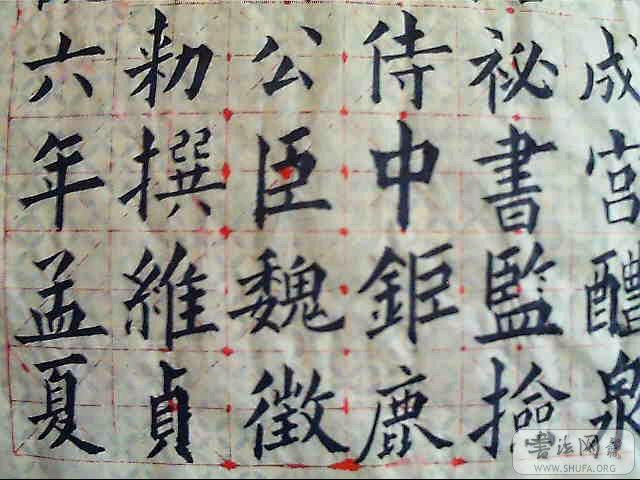 成宫醴泉
祕書監撿
侍中鉅鹿
公臣魏徵
勑撰維貞
六年孟夏
WWW.SHUFA.ORG